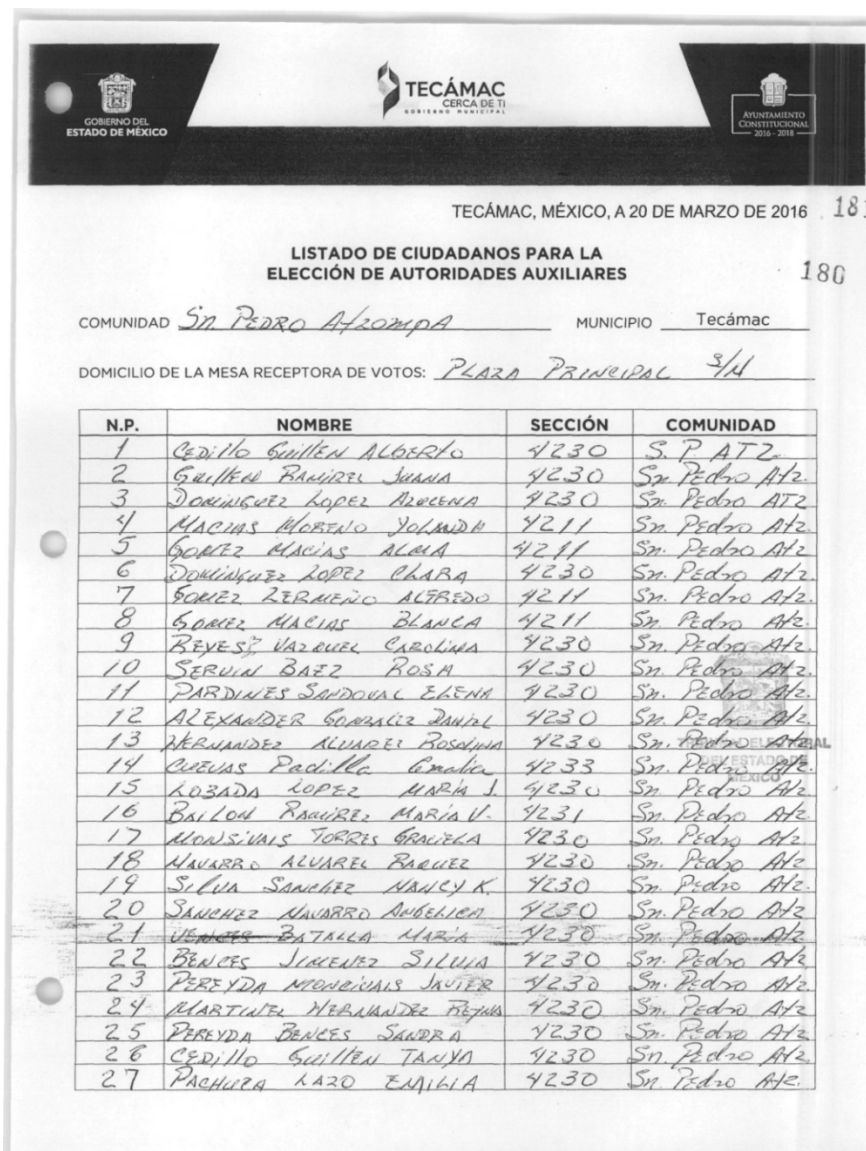 GOBIERNO DEL
ESTADO DE MÉXICO
TECÁMAC
CERCA DE TI
GOBIERNO MUNICIPAL
AYUNTAMIENTO
CONSTITUCIONAL
2016 - 2018
TECÁMAC, MÉXICO, A 20 DE MARZO DE 2016 181
LISTADO DE CIUDADANOS PARA LA
ELECCIÓN DE AUTORIDADES AUXILIARES 180
COMUNIDAD Sn. PEDRO AtzompA MUNICIPIO Tecámac
DOMICILIO DE LA MESA RECEPTORA DE VOTOS: PLAZA PRINCIPAL S/N
N.P. NOMBRE SECCIÓN COMUNIDAD
1 CEDillo GuillEN ALBERto 4230 S. P. ATZ.
2 GuillEN RAMIREZ JUANA 4230 Sn. PEdro Atz.
3 DOMINGUEZ LOPEZ AZUCENA 4230 Sn. PEdro ATZ
4 MACIAS MORENO YOLANDA 4211 Sn. PEdro Atz.
5 GOMEZ MACIAS ALMA 4211 Sn. PEdro Atz.
6 DOMINGUEZ LOPEZ CLARA 4230 Sn. PEdro Atz.
7 GOMEZ ZERMEÑO ALFREDO 4211 Sn. PEdro Atz.
8 GOMEZ MACIAS BLANCA 4211 Sn. PEdro Atz.
9 REYES VAZQUEZ CAROLINA 4230 Sn. PEdro Atz.
10 SERVIN BAEZ ROSA 4230 Sn. PEdro Atz.
11 PARDINES SANDOVAL ELENA 4230 Sn. PEdro Atz.
12 ALEXANDER GONZALEZ DANIEL 4230 Sn. PEdro Atz.
13 HERNANDEZ ALVAREZ ROSALINA 4230 Sn. PEdro Atz.
14 CUEVAS Padilla Amalia 4233 Sn. PEdro Atz.
DEL ESTADO DE
MÉXICO
15 LOZADA LOPEZ MARÍA J. 4230 Sn. PEdro Atz.
16 BAILON RAMIREZ MARÍA V. 4231 Sn. PEdro Atz.
17 MONSIVAIS TORRES GRACIELA 4230 Sn. PEdro Atz.
18 NAVARRO ALVAREZ RAQUEL 4230 Sn. PEdro Atz.
19 SILVA SANCHEZ NANCY K. 4230 Sn. PEdro Atz.
20 SANCHEZ NAVARRO ANGELICA 4230 Sn. PEdro Atz.
21 VENCES BATALLA MARÍA 4230 Sn. PEdro Atz
22 BENCES JIMENEZ SILVIA 4230 Sn. PEdro Atz
23 PEREYDA MONCIVAIS JAVIER 4230 Sn. PEdro Atz
24 MARTINEZ HERNANDEZ REYNA 4230 Sn. PEdro Atz
25 PEREYDA BENCES SANDRA 4230 Sn. PEdro Atz
26 CEDillo GuillEN TANYA 4230 Sn. PEdro Atz.
27 PACHUCA LAZO EMILIA 4230 Sn. PEdro Atz.